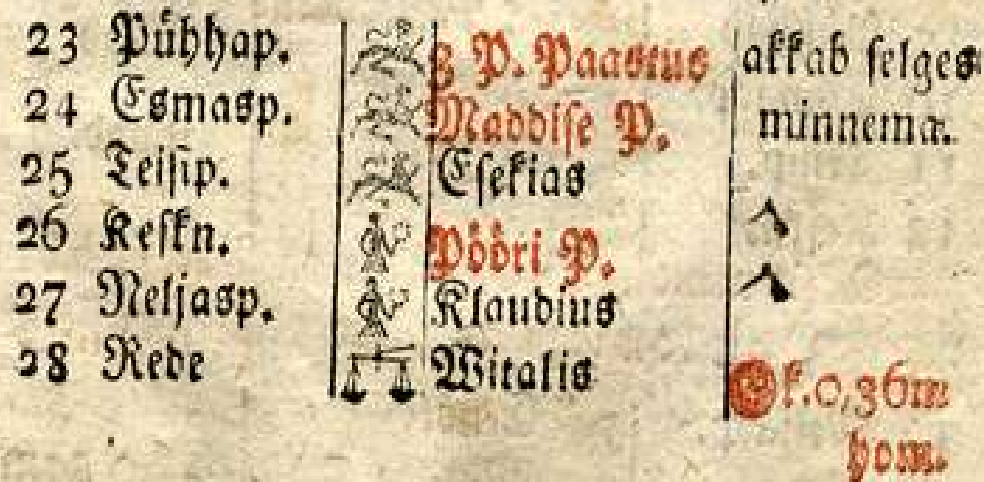 23 Pühhap. 3 P. Paastus akkab selges
24 Esmasp. Maddise P. minnema.
25 Teisip. Esekias
26 Keskn. Pööri P.
27 Neljasp. Klaudius
28 Rede Witalis k. 0, 36 m
hom.